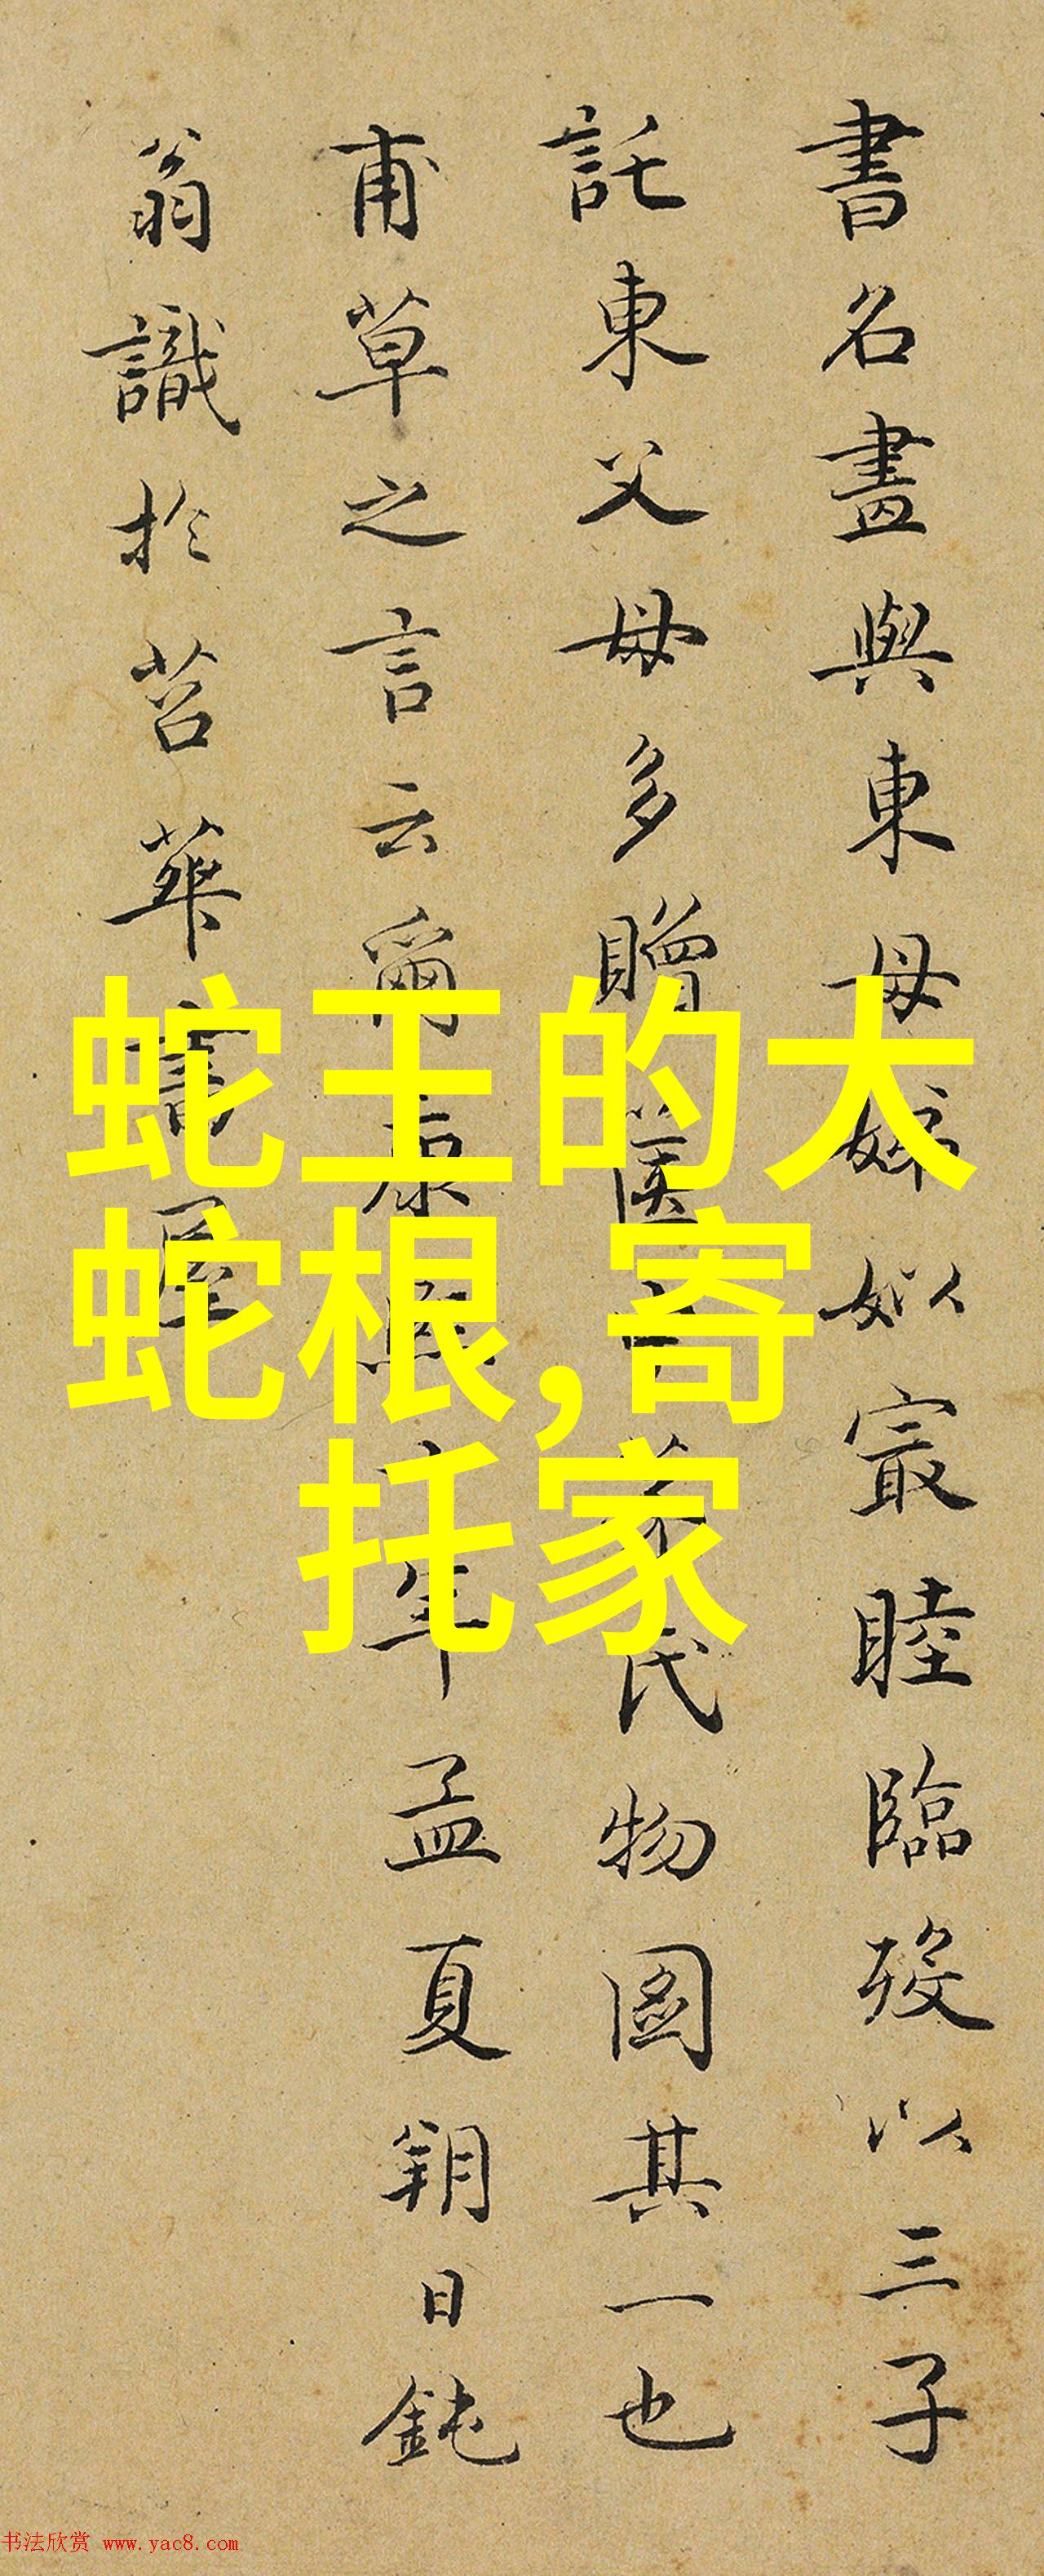 書名畫與東母娣姒寂睦臨歿以三子
託東父母多贈溪 氏物圖其一也
甫草之言云爾康熙 年孟夏朔日鈍
翁識於苕華書屋
蛇王的大
蛇根,寄
托家
书法欣赏 www.yac8.com